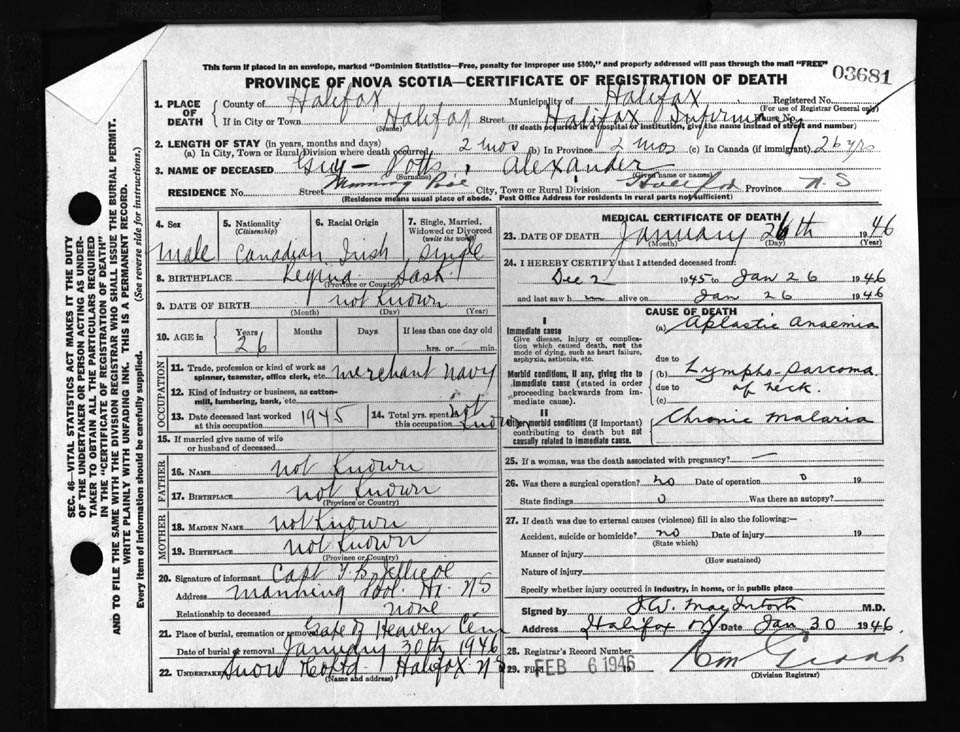 This form if placed in an envelope, marked "Dominion Statistics—Free, penalty for improper use $300," and properly addressed will pass through the mail "FREE"
PROVINCE OF NOVA SCOTIA—CERTIFICATE OF REGISTRATION OF DEATH
03681
1. PLACE OF DEATH
County of Halifax Municipality of Halifax Registered No.
(For use of Registrar General only)
If in City or Town Halifax Street Halifax Infirmary House No.
(Name) (If death occurred in a hospital or institution, give the name instead of street and number)
2. LENGTH OF STAY (in years, months and days)
(a) In City, Town or Rural Division where death occurred 2 mos (b) In Province 2 mos (c) In Canada (if immigrant) 26 yrs
3. NAME OF DECEASED Guy - Potts, Alexander
(Surname) (Given name or names)
RESIDENCE No. Street Manning Pool City, Town or Rural Division Halifax Province N.S
(Residence means usual place of abode. Post Office Address for residents in rural parts not sufficient)
4. Sex
Male
5. Nationality
(Citizenship)
Canadian
6. Racial Origin
Irish
7. Single, Married, Widowed or Divorced
(write the word)
Single
8. BIRTHPLACE Regina Sask
(Province or Country)
9. DATE OF BIRTH not Known
(Month) (Day) (Year)
10. AGE in Years Months Days If less than one day old
26 hrs. or min.
OCCUPATION
11. Trade, profession or kind of work as spinner, teamster, office clerk, etc. Merchant Navy
12. Kind of industry or business, as cotton-mill, lumbering, bank, etc.
13. Date deceased last worked at this occupation 1945
14. Total yrs. spent at this occupation Not Known
15. If married give name of wife or husband of deceased
FATHER
16. NAME not Known
17. BIRTHPLACE not Known
(Province or Country)
MOTHER
18. MAIDEN NAME not Known
19. BIRTHPLACE not Known
(Province or Country)
20. Signature of informant Capt
Address Manning Pool. Hx. NS
Relationship to deceased none
21. Place of burial, cremation or removal Gate of Heaven Cem
Date of burial or removal January 30th 1946
22. Undertaker Snow Co Ltd. Halifax NS
(Name and address)
MEDICAL CERTIFICATE OF DEATH
23. DATE OF DEATH January 26th 1946
(Month) (Day) (Year)
24. I HEREBY CERTIFY that I attended deceased from:
Dec 2 1945 to Jan 26 1946
and last saw h im alive on Jan 26 1946
CAUSE OF DEATH
I
Immediate cause
Give disease, injury or complication which caused death, not the mode of dying, such as heart failure, asphyxia, asthenia, etc.
(a) Aplastic Anaemia
due to
Morbid conditions, if any, giving rise to immediate cause (stated in order proceeding backwards from immediate cause).
(b) Lympho-sarcoma
due to of neck.
(c)
II
Other morbid conditions (if important) contributing to death but not causally related to immediate cause.
Chronic Malaria
25. If a woman, was the death associated with pregnancy? —
26. Was there a surgical operation? no Date of operation 0 19
State findings 0 Was there an autopsy?
27. If death was due to external causes (violence) fill in also the following:—
Accident, suicide or homicide? no Date of injury 19
(State which)
Manner of injury
(How sustained)
Nature of injury
Specify whether injury occurred in industry, in home, or in public place
Signed by J.W. MacIntosh M.D.
Address Halifax NS Date Jan 30 1946.
28. Registrar's Record Number
29. Filed FEB 6 1946
(Division Registrar)
SEC. 46—VITAL STATISTICS ACT MAKES IT THE DUTY
OF THE UNDERTAKER OR PERSON ACTING AS UNDER-
TAKER TO OBTAIN ALL THE PARTICULARS REQUIRED
IN THE "CERTIFICATE OF REGISTRATION OF DEATH"
AND TO FILE THE SAME WITH THE DIVISION REGISTRAR WHO SHALL ISSUE THE BURIAL PERMIT.
WRITE PLAINLY WITH UNFADING INK. THIS IS A PERMANENT RECORD.
Every item of information should be carefully supplied. (See reverse side for instructions.)